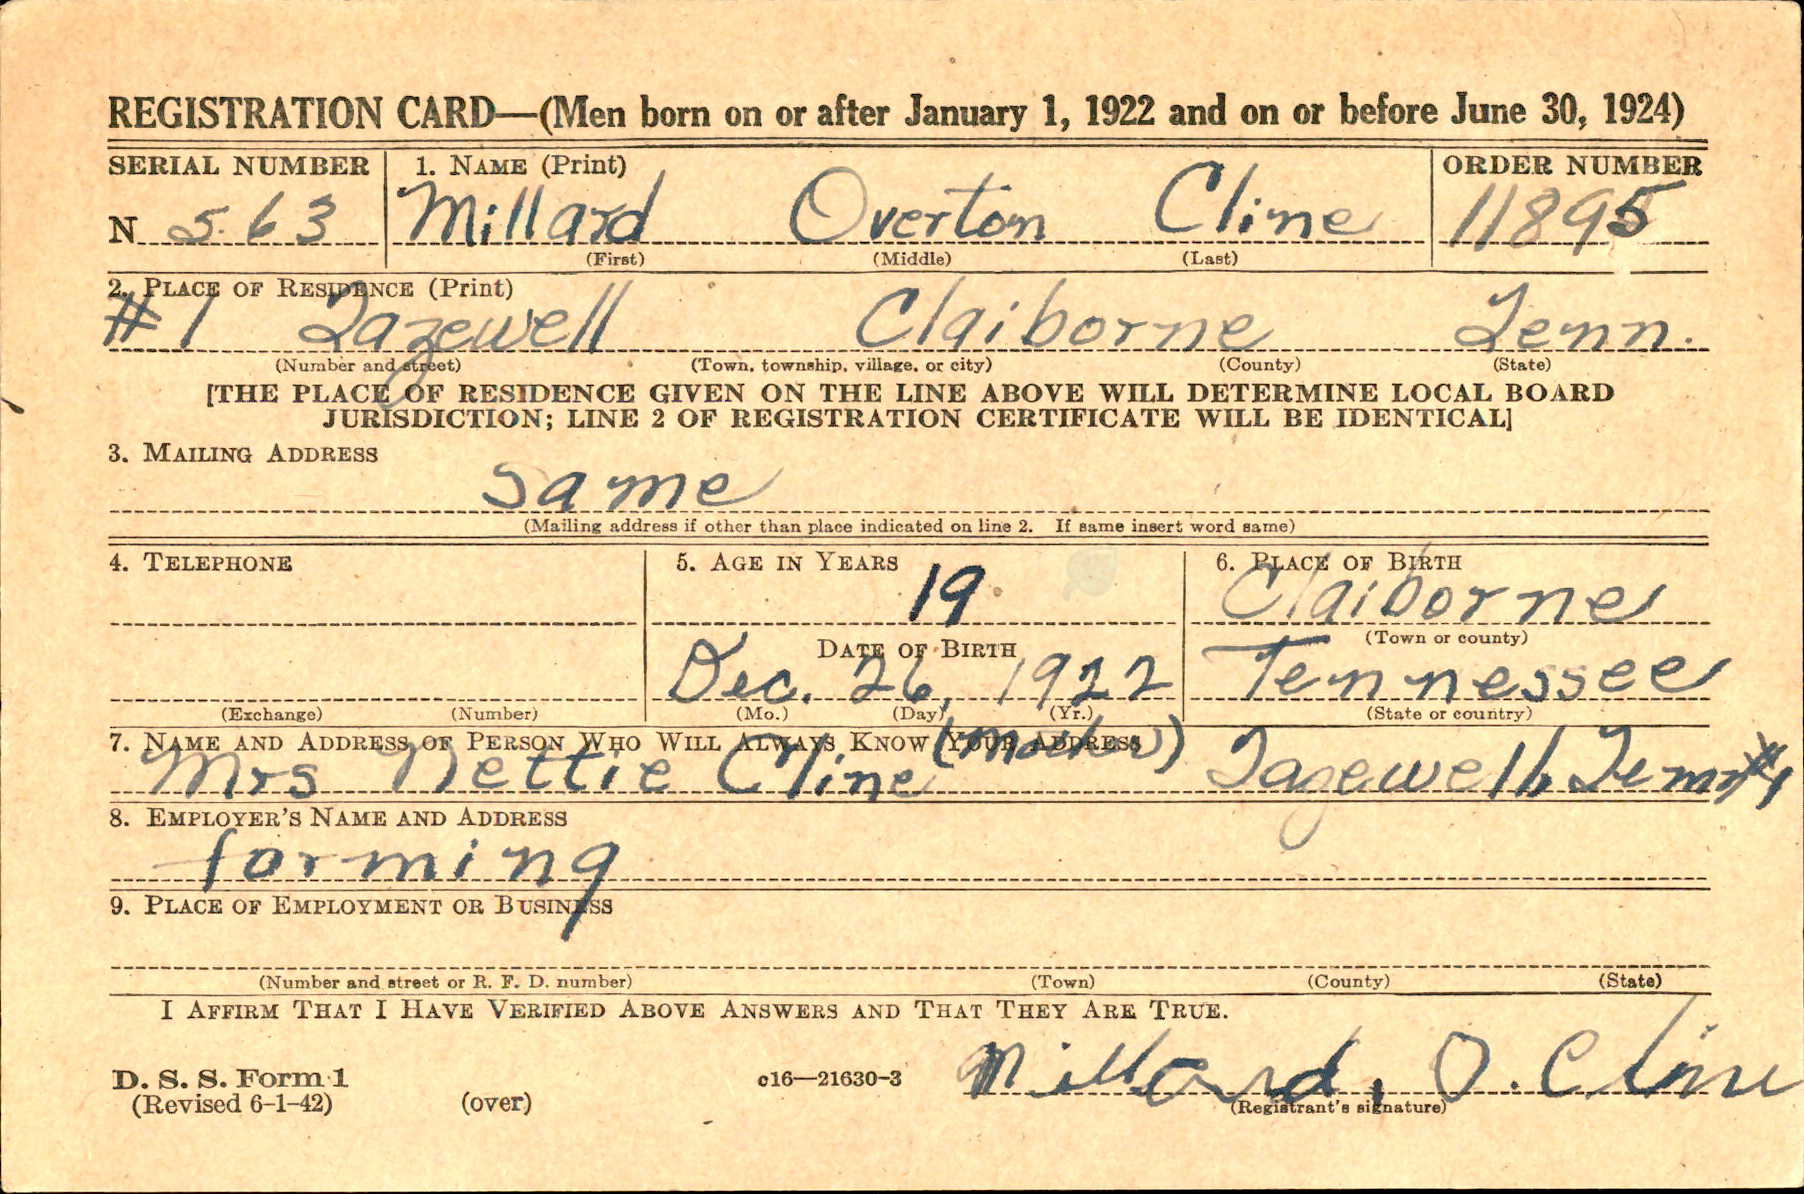 REGISTRATION CARD—(Men born on or after January 1, 1922 and on or before June 30, 1924)
SERIAL NUMBER 1. NAME (Print) ORDER NUMBER
N 563 Millard Overton Cline 11895
(First) (Middle) (Last)
2. PLACE OF RESIDENCE (Print)
#1 Tazewell Claiborne Tenn.
(Number and street) (Town, township, village, or city) (County) (State)
[THE PLACE OF RESIDENCE GIVEN ON THE LINE ABOVE WILL DETERMINE LOCAL BOARD
JURISDICTION; LINE 2 OF REGISTRATION CERTIFICATE WILL BE IDENTICAL]
3. MAILING ADDRESS
Same
(Mailing address if other than place indicated on line 2. If same insert word same)
4. TELEPHONE 5. AGE IN YEARS 6. PLACE OF BIRTH
19 Claiborne
DATE OF BIRTH (Town or county)
Dec. 26, 1922 Tennessee
(Exchange) (Number) (Mo.) (Day) (Yr.) (State or country)
7. NAME AND ADDRESS OF PERSON WHO WILL ALWAYS KNOW YOUR ADDRESS
Mrs Nettie Cline (Mother) Tazewell, Tenn #1
8. EMPLOYER'S NAME AND ADDRESS
forming
9. PLACE OF EMPLOYMENT OR BUSINESS
(Number and street or R. F. D. number) (Town) (County) (State)
I AFFIRM THAT I HAVE VERIFIED ABOVE ANSWERS AND THAT THEY ARE TRUE.
D. S. S. Form 1 c16—21630-3 Millard, O. Cline
(Revised 6-1-42) (over) (Registrant's signature)